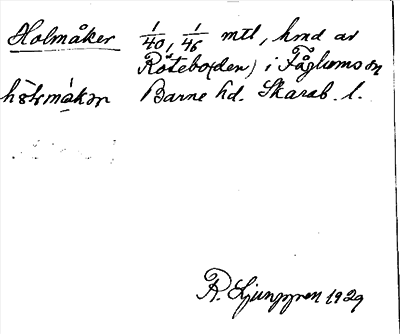 Holmåker 1/40, 1/46 mtl, hmd av
Råtebo(den) i Fåglums sn
Barne hd. Skarab. l.
R. Ljunggren 1929